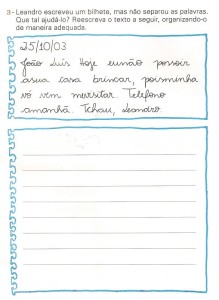 3- Leandro escreveu um bilhete, mas não separou as palavras.
Que tal ajudá-lo? Reescreva o texto a seguir, organizando-o
de maneira adequada.
25/10/03
João Luís Hoje eunão possoir
asua casa brincar, poisminha
vó vem mevisitar. Telefono
amanhã. Tchau, Leandro.